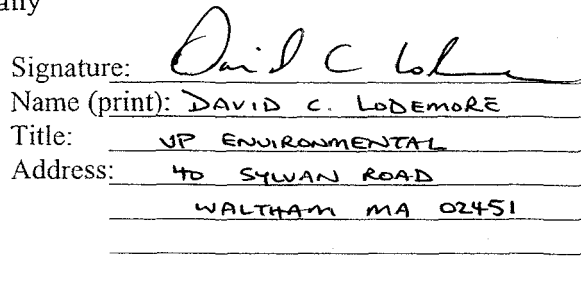 any
Signature: David C Lo
Name (print): DAVID C. LODEMORE
Title: VP ENVIRONMENTAL
Address: 40 SYLVAN ROAD
WALTHAM MA 02451